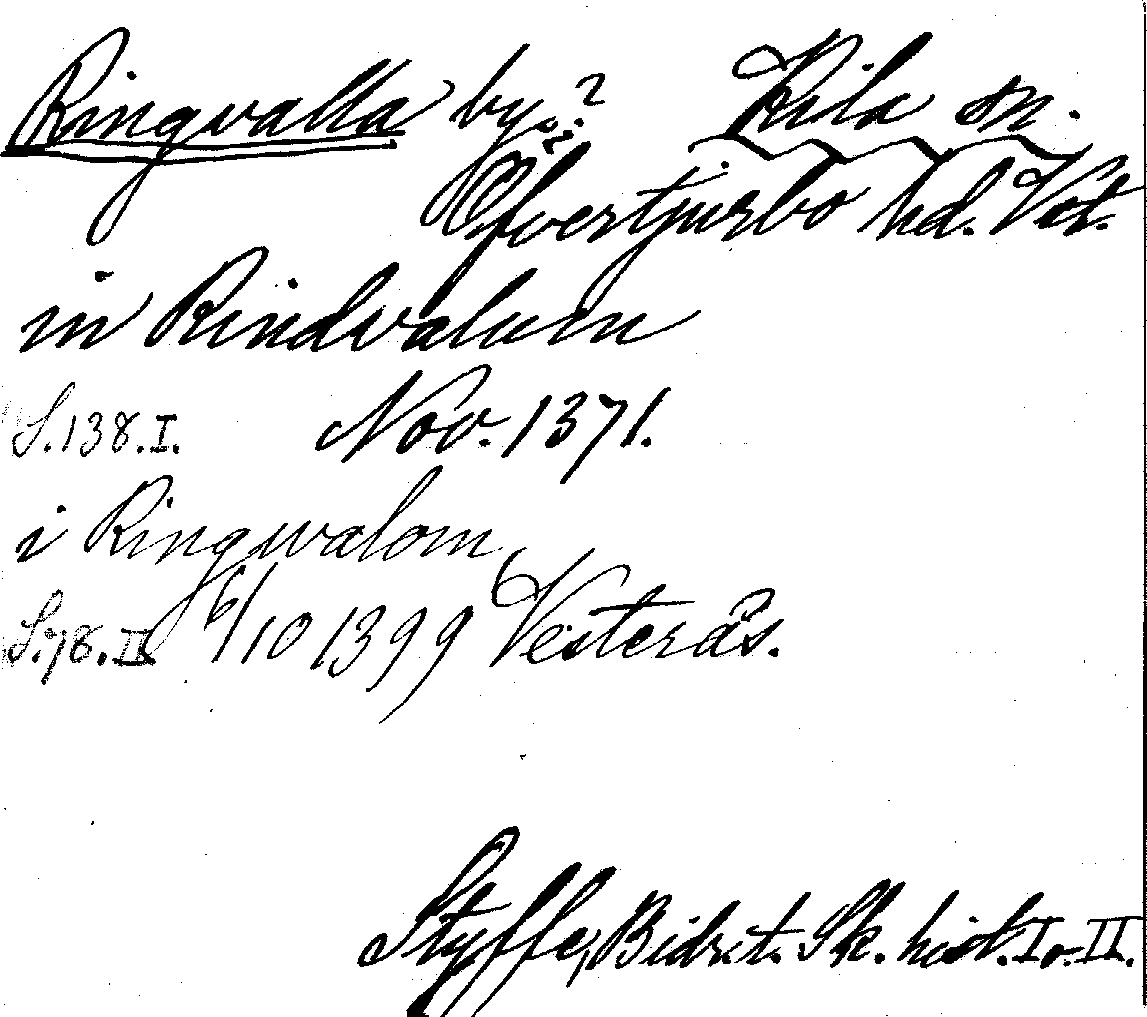 Ringvalla by? Kila sn.
Öfvertjurbo hd. Vstm.
in Rindvalum
S. 138. I. Nov. 1371.
i Ringwalom
S. 78. II. 6/10 1399 Vesterås.
Styffe, Bidr. t. Sk. hist. I o. II.